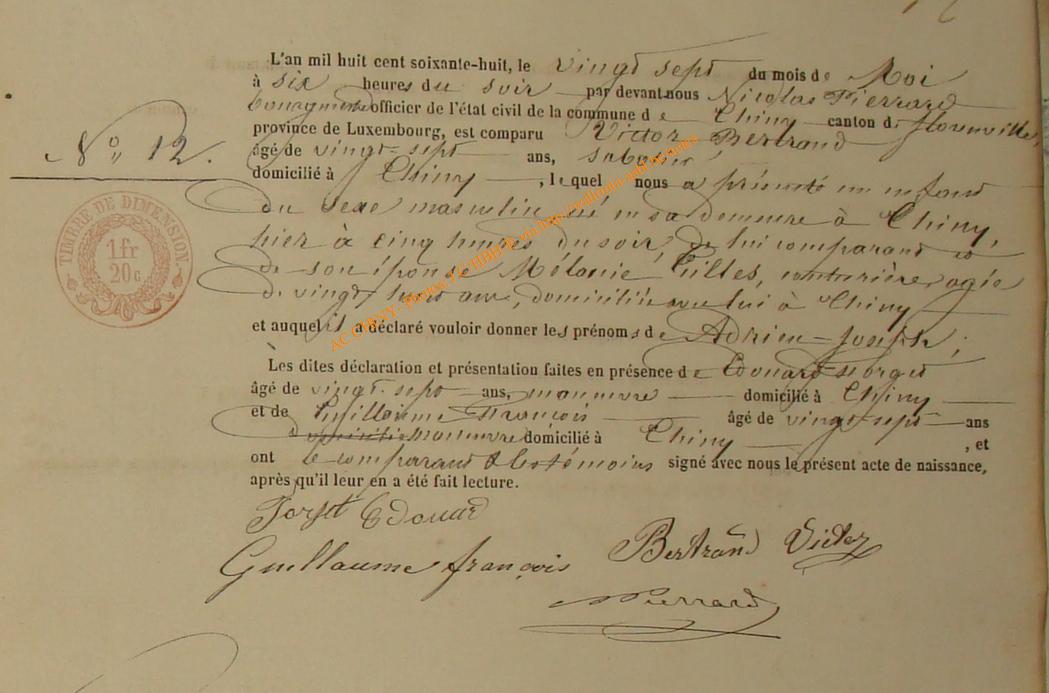 L'an mil huit cent soixante-huit, le vingt sept du mois de Mai
à six heures du soir par devant nous Nicolas Pierrard
bourgmestre officier de l'état civil de la commune de Chiny canton de florenville,
province de Luxembourg, est comparu Victor Bertrand
N° 12.
âgé de vingt-sept ans, sabotier
domicilié à Chiny, lequel nous a présenté un enfant
du sexe masculin né en sa demeure à Chiny,
hier à cinq heures du soir, de lui comparant et
de son épouse Mélanie Gilles, couturière agée
de vingt huit ans, domiciliée avec lui à Chiny
et auquel il a déclaré vouloir donner les prénoms de Adrien-Joseph,
Les dites déclaration et présentation faites en présence de Edouard
âgé de vingt-sept ans, manuvre domicilié à Chiny
et de Guillaume François âgé de vingt sept ans
manuvre domicilié à Chiny, et
ont le comparant & les témoins signé avec nous le présent acte de naissance,
après qu'il leur en a été fait lecture.
Edouard
Guillaume françois Bertrand Victor
NPierrard
TIMBRE DE DIMENSION.
1 fr
20 c